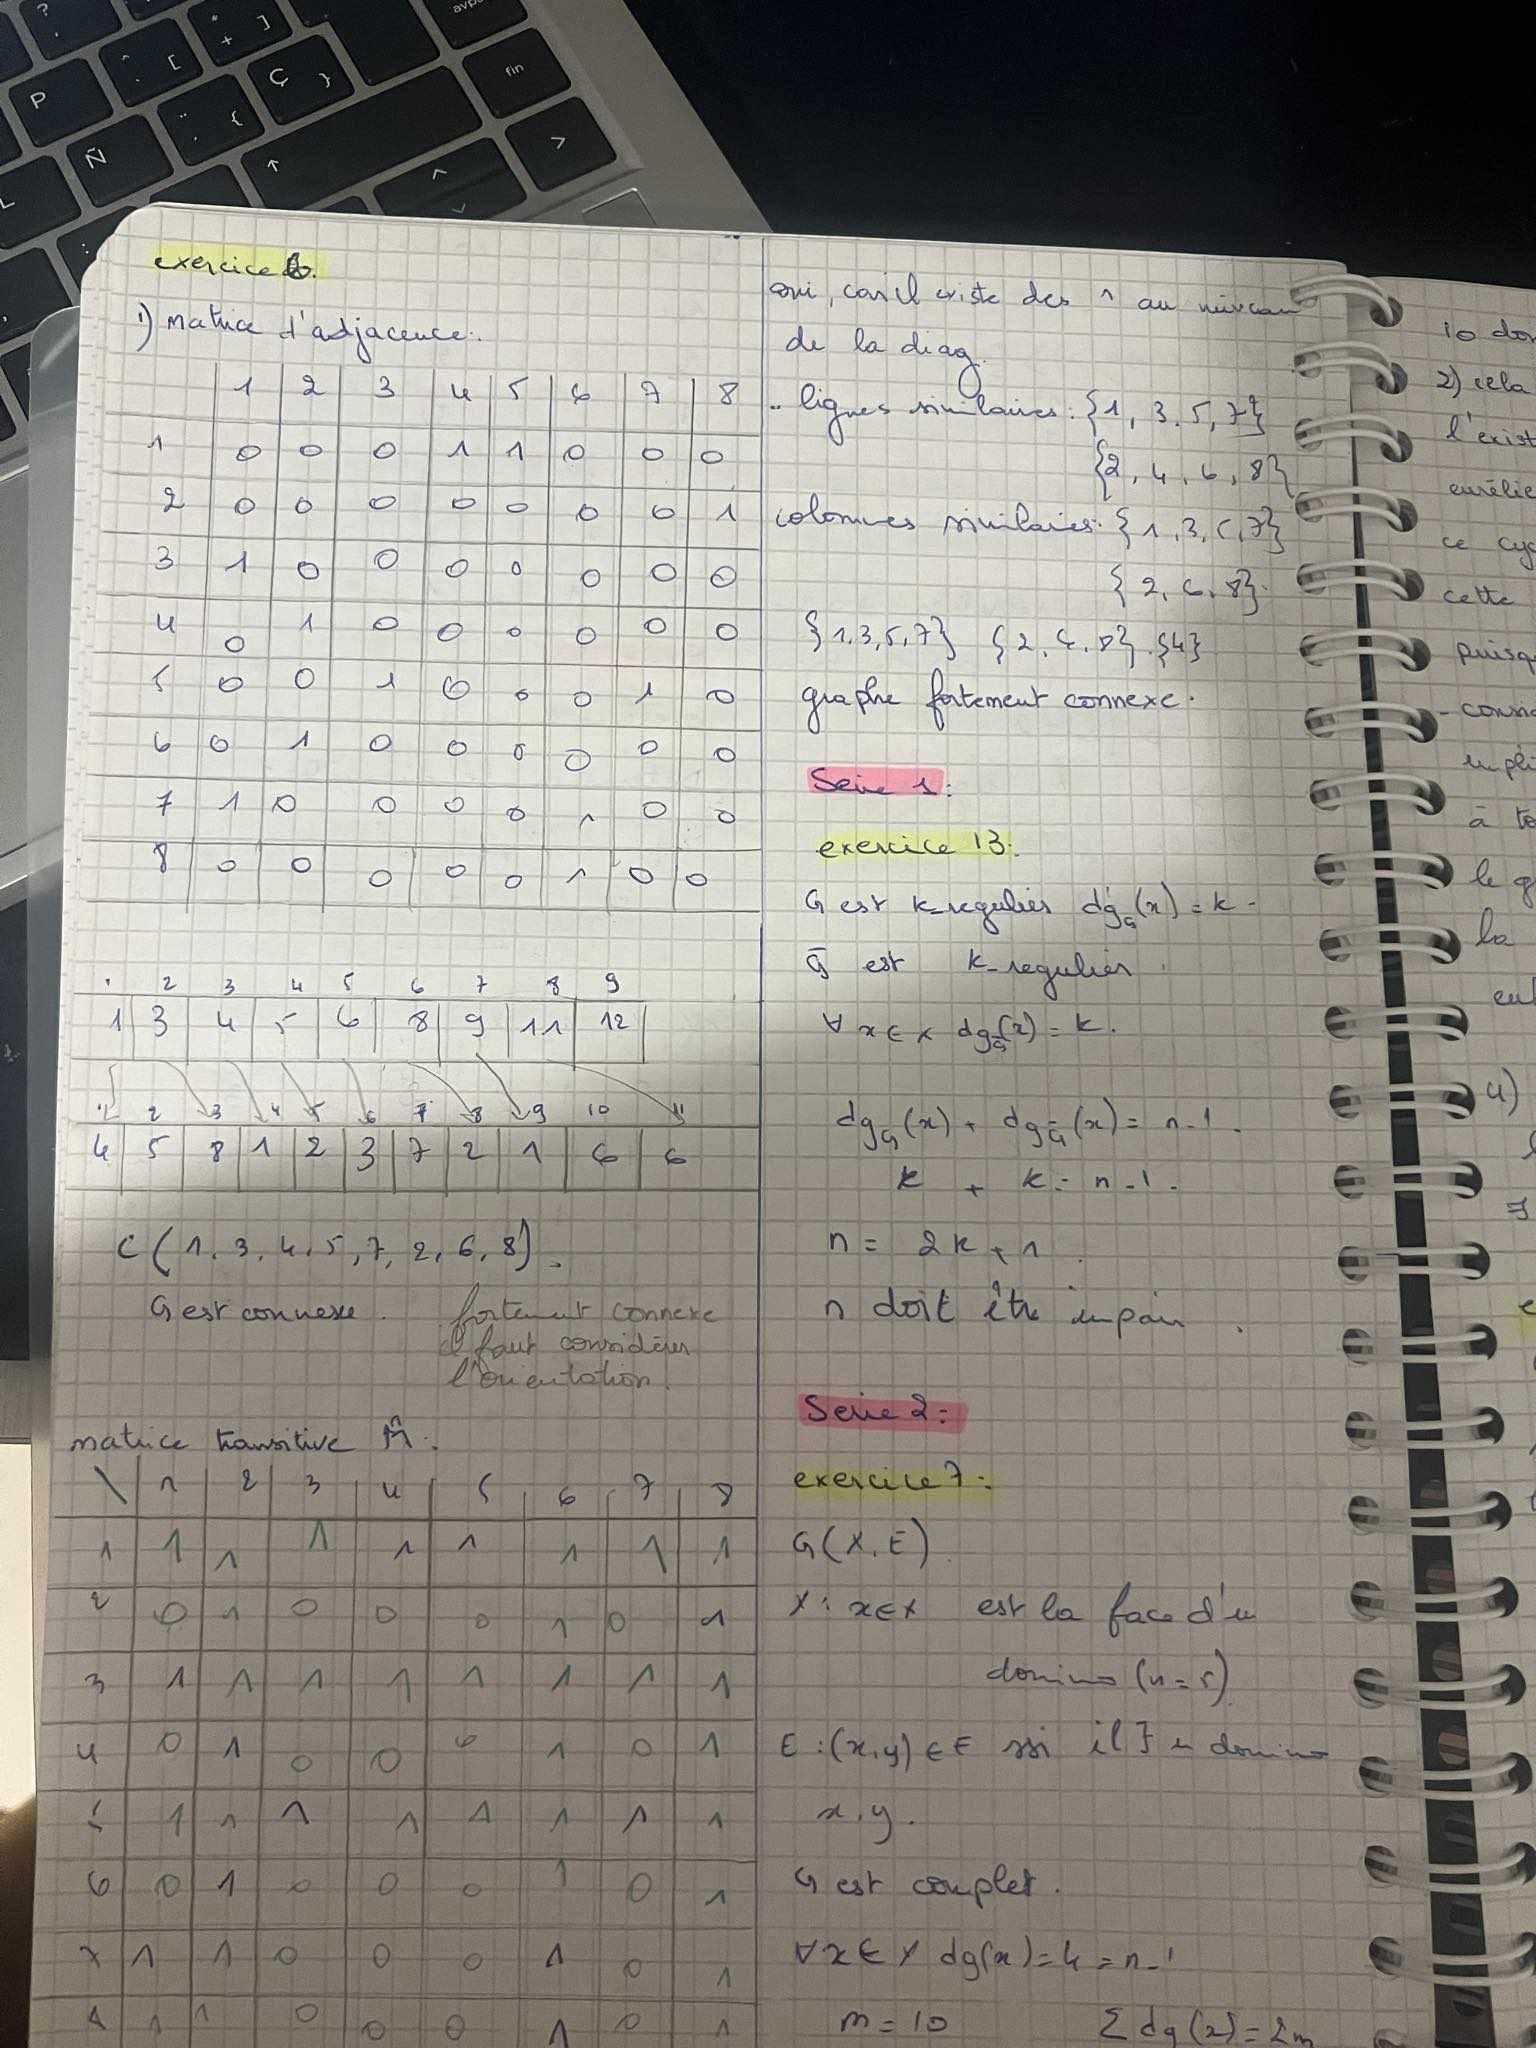 exercice 6.
1) Matrice d'adjacence:
1 2 3 4 5 6 7 8
1 0 0 0 1 1 0 0 0
2 0 0 0 0 0 0 0 1
3 1 0 0 0 0 0 0 0
4 0 1 0 0 0 0 0 0
5 0 0 1 0 0 0 1 0
6 0 1 0 0 0 0 0 0
7 1 0 0 0 0 1 0 0
8 0 0 0 0 0 1 0 0
1 2 3 4 5 6 7 8 9
1 3 4 5 6 8 9 11 12
1 2 3 4 5 6 7 8 9 10 11
4 5 8 1 2 3 7 2 1 6 6
C (1, 3, 4, 5, 7, 2, 6, 8).
G est connexe.
fortement connexe
il faut considérer
l'orientation.
matrice transitive M̂:
\ 1 2 3 4 5 6 7 8
1 1 1 1 1 1 1 1 1
2 0 1 0 0 0 1 0 1
3 1 1 1 1 1 1 1 1
4 0 1 0 0 0 1 0 1
5 1 1 1 1 1 1 1 1
6 0 1 0 0 0 1 0 1
7 1 1 0 0 0 1 0 1
1 1 0 0 0 1 0 1
oui, car il existe des 1 au niveau
de la diag.
.. lignes similaires: {1, 3, 5, 7}
{2, 4, 6, 8}
colonnes similaires: {1, 3, 5, 7}
{2, 6, 8}.
{1, 3, 5, 7} {2, 6, 8}. {4}
graphe fortement connexe.
Serie 1:
exercice 13:
G est k-regulier dg_G(x) = k.
Ḡ est k-regulier.
∀ x ∈ X dg_Ḡ(x) = k.
dg_G(x) + dg_Ḡ(x) = n-1.
k + k = n-1.
n = 2k + 1.
n doit être impair.
Serie 2:
exercice 7:
G(X, E)
X: x∈X est la face d'un
domino (n = 5).
E: (x,y) ∈ E ssi il ∃ un domino
x, y.
G est complet.
∀ x ∈ X dg(x) = 4 = n-1
m = 10 Σ dg(x) = 2m
10
2) cela
ce
cette
puisq
à
le
la
4)